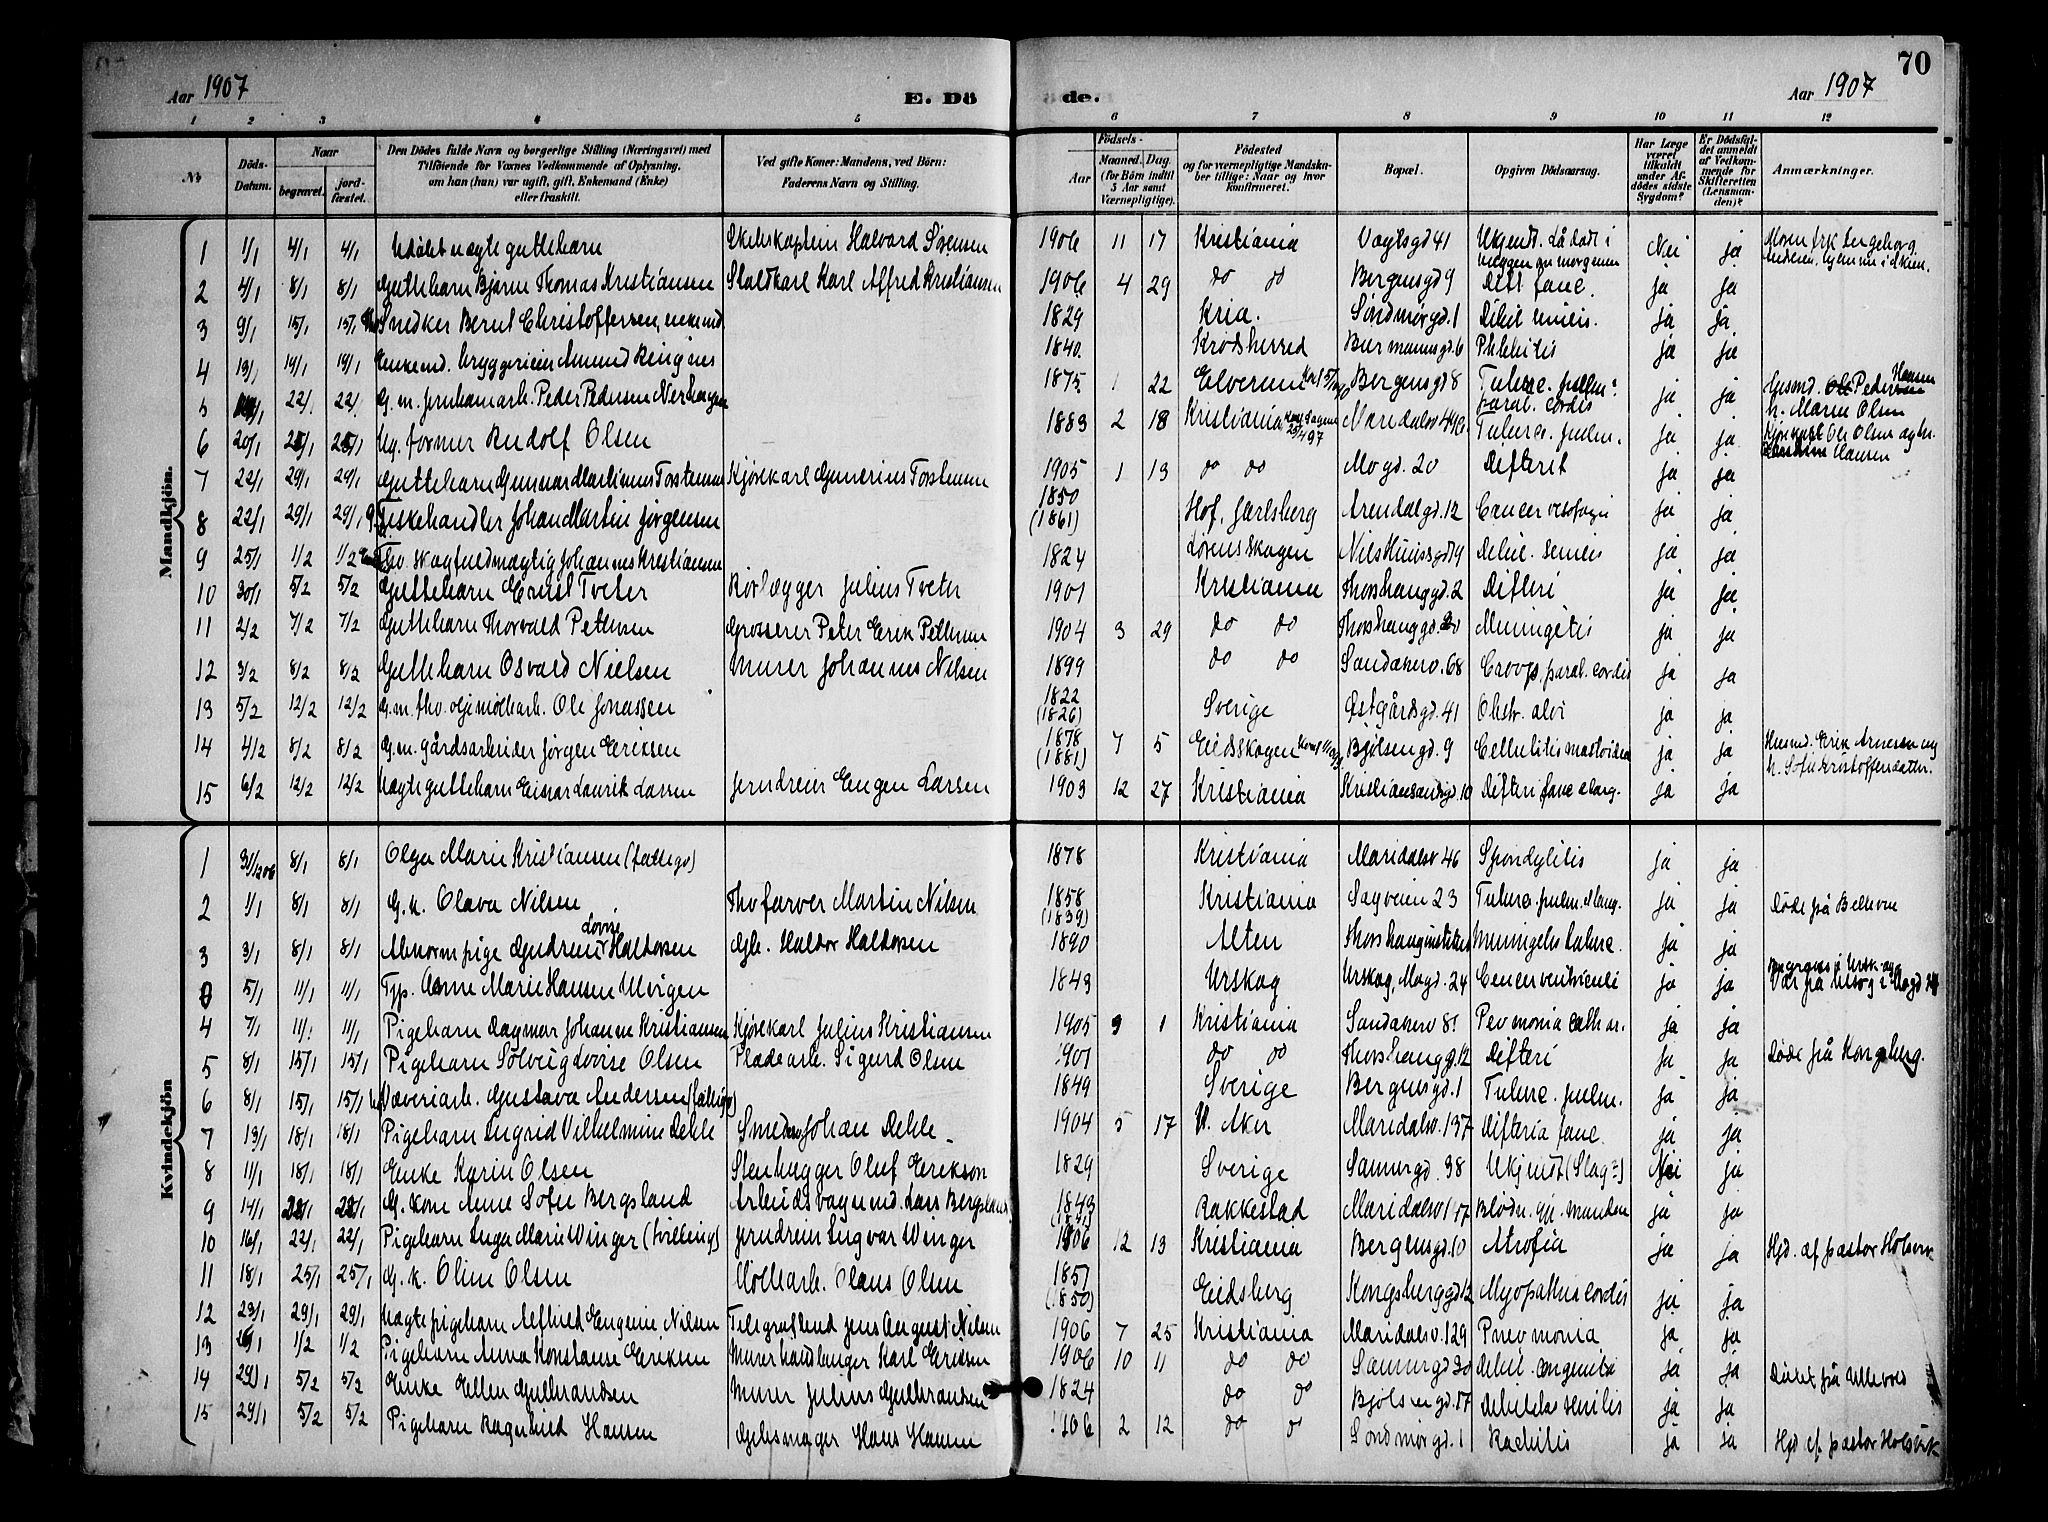 70
Aar 1907 E. Dö de. Aar 1907
1 2 3 4 5 6 7 8 9 10 11 12
№ Döds-Datum. Naar begravet. jordfæstet. Den Dödes fulde Navn og borgerlige Stilling (Næringsvei) med Tilföiende for Voxnes Vedkommende af Oplysning, om han (hun) var ugift, gift, Enkemand (Enke) eller fraskilt. Ved gifte Koner: Mandens, ved Börn: Faderens Navn og Stilling. Födsels- Aar Maaned. Dag. (for Börn indtil 5 Aar samt Værnepligtige). Födested og for værnepligtige Mandskaber tillige: Naar og hvor konfirmeret. Bopæl. Opgiven Dödsaarsag. Har Læge været tilkaldt under Afdödes sidste Sygdom? Er Dödsfaldet anmeldt af Vedkommende for Skifteretten (Lensmanden)? Anmærkninger.
Mandkjön.
1 1/1 4/1 4/1 Udöbt uægte guttebarn Skibskaptein Halvard Sørensen 1906 11 17 Kristiania Vogtsgd 41 Ukjendt. Lå död i væggen om morgenen Nei ja Moren frk Ingeborg
2 4/1 8/1 8/1 Guttebarn Bjarne Thomas Kristiansen Staldkarl Karl Alfred Kristiansen 1906 4 29 do do Bergensgd 9 Dift fauc. ja ja
3 9/1 15/1 15/1 Snedker Bernt Christoffersen, enkemd. 1829 Kria. Söndmörgd. 1 Debil. senilis. ja ja
4 13/1 19/1 19/1 Enkemd. bryggerieier Amund Ringnes 1840. Krödsherred Biermannsgd. 6 Phlebitis ja ja
5 22/1 22/1 G. m. jernbanearb. Peder Pedersen Nerhagen 1875 1 22 Elverum Bergensgd 8 Tuberc. pulm. paral. cordis ja ja Husmd. Peder Hansen h. Maren Olsen
6 20/1 25/1 25/1 Ug. former Rudolf Olsen 1883 2 18 Kristiania Maridalsv 44b Tuberc. pulm. ja ja Kjørekarl Ole Olsen og h. Hansen
7 22/1 29/1 29/1 Guttebarn Gunnar Martinius Torstensen Kjörekarl Gunerius Torstensen 1905 1 13 do do Mogd. 20 Difterit ja ja
8 22/1 29/1 29/1 Fiskehandler Johan Martin Jørgensen 1850 (1861) Hof, Jarlsberg Arendalgd. 12 Cancer oesofagi ja ja
9 25/1 1/2 1/2 Fhv. Sagfuldmægtig Johannes Kristiansen 1824 Lörenskogen Nils Huusgd 9 Debil. senilis ja ja
10 30/1 5/2 5/2 Guttebarn Ernst Tveter Rörlægger Julius Tveter 1901 Kristiania Thorshauggd. 2 Difteri ja ja
11 2/2 7/2 7/2 Guttebarn Thorvald Pettersen Grosserer Peter Erik Pettersen 1904 3 29 do do Thorshauggd. Meningitis ja ja
12 3/2 8/2 8/2 Guttebarn Osvald Nielsen Murer Johannes Nilsen 1899 do do Sandakerv. 68 Croop, paral. cordis ja ja
13 5/2 12/2 12/2 G. m. fhv. oljemöllearb. Ole Jonassen 1822 (1826) Sverige Østgårdsgd. 41 Obstr. alvi ja ja
14 4/2 8/2 8/2 G. m. gårdsarbeider Jørgen Eriksen 1878 (1881) 7 5 Eidskogen Bjölsengd. 9 Cellulitis mastoidea ja ja Husmd. Erik Arnesen og h. Sofie Kristoffersdatter.
15 6/2 12/2 12/2 Uægte guttebarn Einar Laurik Larsen Jerndreier Eugen Larsen 1903 12 27 Kristiania Kristiansandsgd. 10 Difteri fauc & larg. ja ja
Kvindekjön
1 31/12 06 8/1 8/1 Olga Marie Kristiansen (fattiggd) 1878 Kristiania Maridalsv 46 Spondylitis ja ja
2 1/1 8/1 8/1 G. k. Olava Nilsen Fhv farver Martin Nilsen 1858 (1839) Kristiania Sagveien 23 Tuberc. pulm. & larg. ja ja Döde på Bellevue
3 3/1 8/1 8/1 Abnorm pige Gudrun Lovise Haldorsen Gbr. Haldor Haldorsen 1890 Alten Thorshauginstitut Meningitis tuberc. ja ja
0 5/1 11/1 11/1 Tjp. Anne Marie Hansen Ulvigen 1843 Urskog Urskog, Mogd. 24 Cancer ventriculi ja ja Begraves i Urskog Var på besög i Mogd 24
4 7/1 11/1 11/1 Pigebarn Dagmar Johanne Kristiansen Kjörekarl Julius Kristiansen 1905 9 1 Kristiania Sandakerv 81 Pevmonia cathar. ja ja
5 8/1 15/1 15/1 Pigebarn Solveig Lovise Olsen Pladearb. Sigurd Olsen 1901 do do Thorshauggd. 12 Difteri ja ja Döde på Kongsberg.
6 8/1 15/1 15/1 Væveriarb. Gustava Andersen (fattiggd) 1849 Sverige Bergensgd. 1 Tuberc. pulm. ja ja
7 13/1 18/1 18/1 Pigebarn Ingrid Vilhelmine Dehle Smed Johan Dehle 1904 5 17 V. Aker Maridalsv. 137 Difteria fauc. ja ja
8 11/1 18/1 18/1 Enke Karin Olsen Stenhugger Oluf Erikson 1829 Sverige Sannergd. 38 Ukjendt (Slag?) Nei ja
9 14/1 22/1 22/1 G. kone Anne Sofie Bergsland Arbeidsvognmd. Lars Bergsland 1843 (1841) Rakkestad Maridalsv 117 Blödn. gj. munden ja ja
10 16/1 22/1 22/1 Pigebarn Inga Marie Winger (tvilling) Jerndreier Ingvar Winger 1906 12 13 Kristiania Bergensgd. 10 Atrofia ja ja Hjd. af pastor Holsvik
11 18/1 25/1 25/1 G. k. Oline Olsen Möllearb. Olaus Olsen 1851 (1850) Eidsberg Kongsberggd 12 Myopathia cordis ja ja
12 23/1 29/1 29/1 Uægte pigebarn Alfhild Eugenie Nilsen Telegrafbud Jens August Nilsen 1906 7 25 Kristiania Maridalsv. 129 Pnevmonia ja ja
13 1/2 1/2 Pigebarn Anna Konstanse Eriksen Murerhandlanger Karl Eriksen 1906 10 11 do do Sannergd 30 Debil. congenita ja ja
14 29/1 5/2 5/2 Enke Ellen Gulbrandsen Murer Julius Gulbrandsen 1824 do do Bjölsengd. 17 Debilitas senilis ja ja Död på Ullevold
15 29/1 5/2 5/2 Pigebarn Ragnhild Hansen Gjelsmager Hans Hansen 1906 2 12 do do Söndmörgd. 1 Rachitis ja ja Hjd af pastor Holsvik